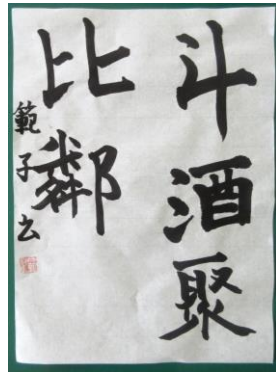 斗酒聚
比鄰
範子书